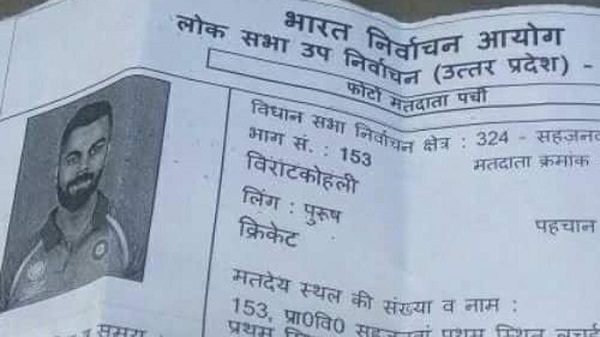 भारत निर्वाचन आयोग
लोक सभा उप निर्वाचन (उत्तर प्रदेश) -
फोटो मतदाता पर्ची
विधान सभा निर्वाचन क्षेत्र : 324 - सहजनव
भाग सं. : 153
मतदाता क्रमांक
विराटकोहली
लिंग : पुरूष
पहचान
क्रिकेट
मतदेय स्थल की संख्या व नाम :
153, प्रा0वि0 सहजनवां प्रथम स्थित
समय
प्रथम